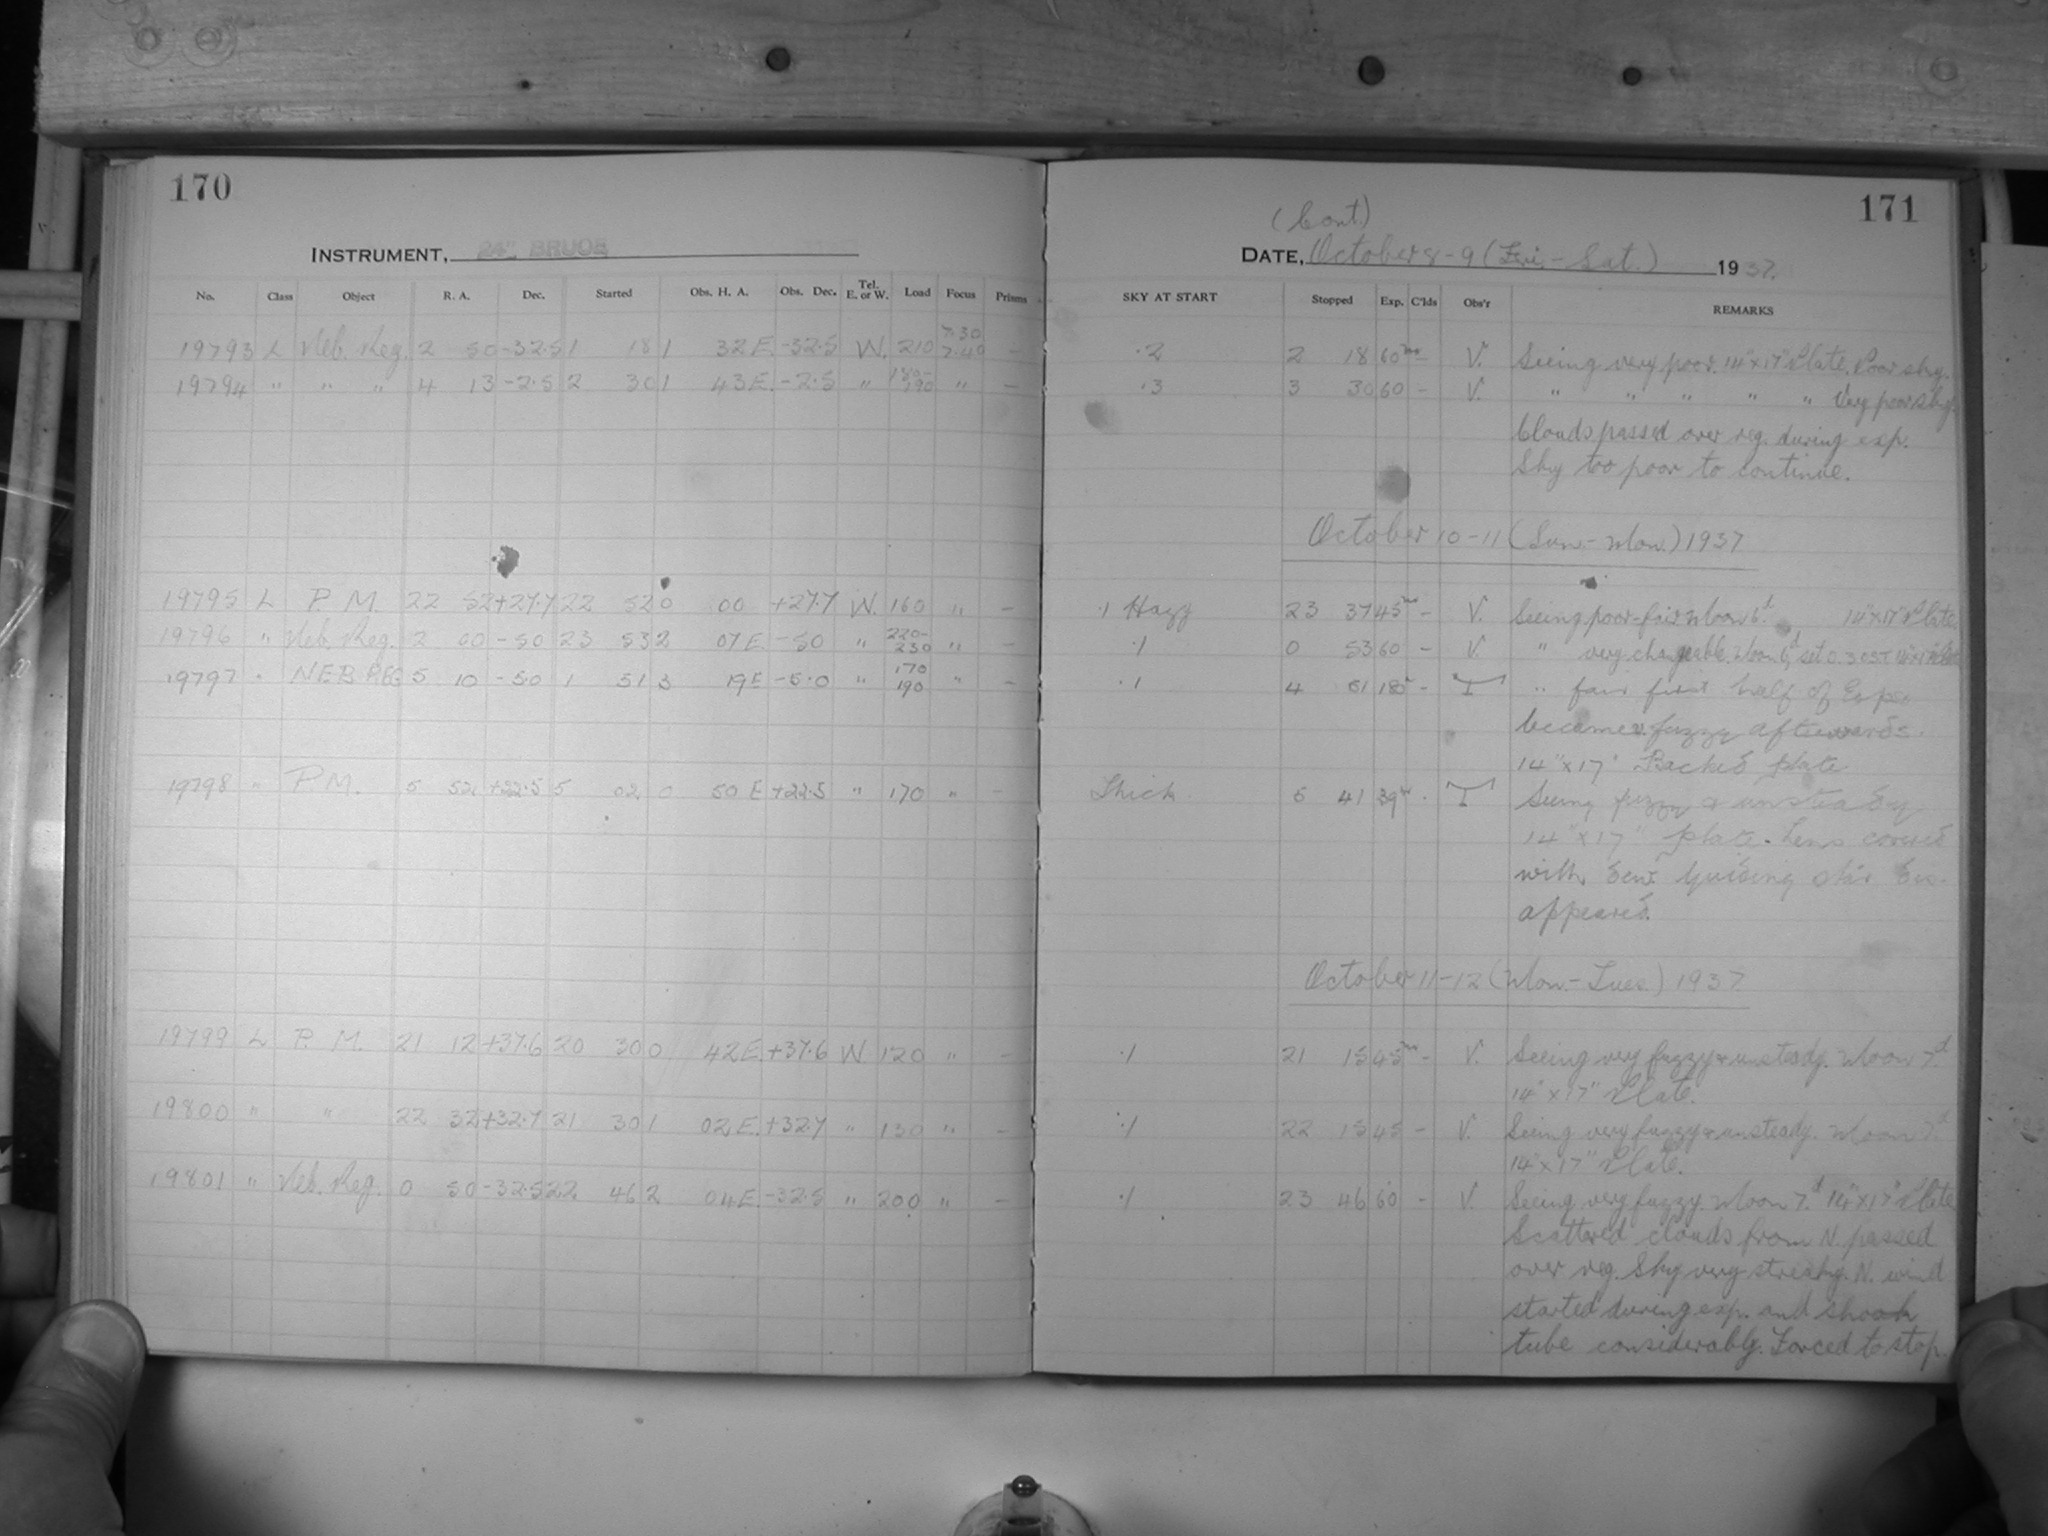 170
INSTRUMENT, 24" BRUCE
No. Class Object R. A. Dec. Started Obs. H. A. Obs. Dec. Tel. E. or W. Load Focus Prisms
19793 L Neb. Reg. 2 50 -32.5 1 18 1 32 E. -32.5 W. 210 7.30 7.40 -
19794 " " " 4 13 -2.5 2 30 1 43 E. -2.5 " 180- 190 " -
19795 L P. M. 22 52 +27.7 22 52 0 00 +27.7 W. 160 " -
19796 " Neb. Reg. 2 00 -50 23 53 2 07 E. -50 " 220- 230 " -
19797 " NEB REG 5 10 -50 1 51 3 19 E -5.0 " 170 190 " -
19798 " P M. 5 52 +22.5 5 02 0 50 E +22.5 " 170 " -
19799 L P. M. 21 12 +37.6 20 30 0 42 E. +37.6 W 120 " -
19800 " " 22 32 +32.7 21 30 1 02 E. +32.7 " 130 " -
19801 " Neb. Reg. 0 50 -32.5 22 46 2 04 E. -32.5 " 200 " -
171
(Cont.)
DATE, October 8-9 (Fri.-Sat.) 1937.
SKY AT START Stopped Exp. C'lds Obs'r REMARKS
.2 2 18 60m - V. Seeing very poor. 14"x17" Plate. Poor sky.
.3 3 30 60 - V. " " " " " Very poor sky.
Clouds passed over reg. during exp.
Sky too poor to continue.
October 10-11 (Sun.-Mon.) 1937
.1 Hazy 23 37 45m - V. Seeing poor-fair Moon 6d. 14"x17" Plate.
.1 0 53 60 - V. " very changeable. Moon 6d, set 0.30 ST 14"x17" Plate
.1 4 51 180 - T " fair first half of Exp.
became fuzzy afterwards.
14"x17" Backed plate
Thick 5 41 39m . T Seeing fuzzy & unsteady
14"x17" plate. Lens covered
with dew. Guiding star dis-
appeared.
October 11-12 (Mon.-Tues.) 1937
.1 21 15 45m - V. Seeing very fuzzy & unsteady. Moon 7d.
14"x17" Plate.
.1 22 15 45 - V. Seeing very fuzzy & unsteady. Moon 7d.
14"x17" Plate.
.1 23 46 60 - V. Seeing very fuzzy. Moon 7d. 14"x17" Plate
Scattered clouds from N. passed
over reg. Sky very streaky. N. wind
started during exp. and shook
tube considerably. Forced to stop.